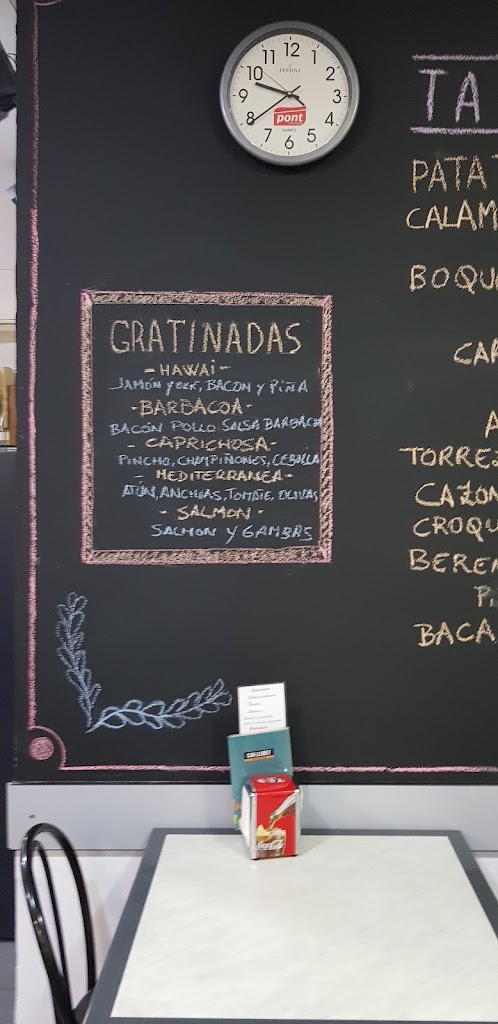 12
11
1
10
2
9
3
8
4
7
5
6
FESTINA
pont
QUARTZ
TA
PATAT
CALAM
BOQU
CAR
A
TORREZ
CAZON
CROQU
BEREN
P
BACA
GRATINADAS
-HAWAI-
JAMÓN YORK, BACON Y PIÑA
-BARBACOA-
BACÓN POLLO SALSA BARBACOA
-CAPRICHOSA-
PINCHO, CHAMPIÑONES, CEBOLLA
-MEDITERRANEA-
ATÚN, ANCHOAS, TOMATE, OLIVAS
-SALMON-
SALMON Y GAMBAS
Coca-Cola